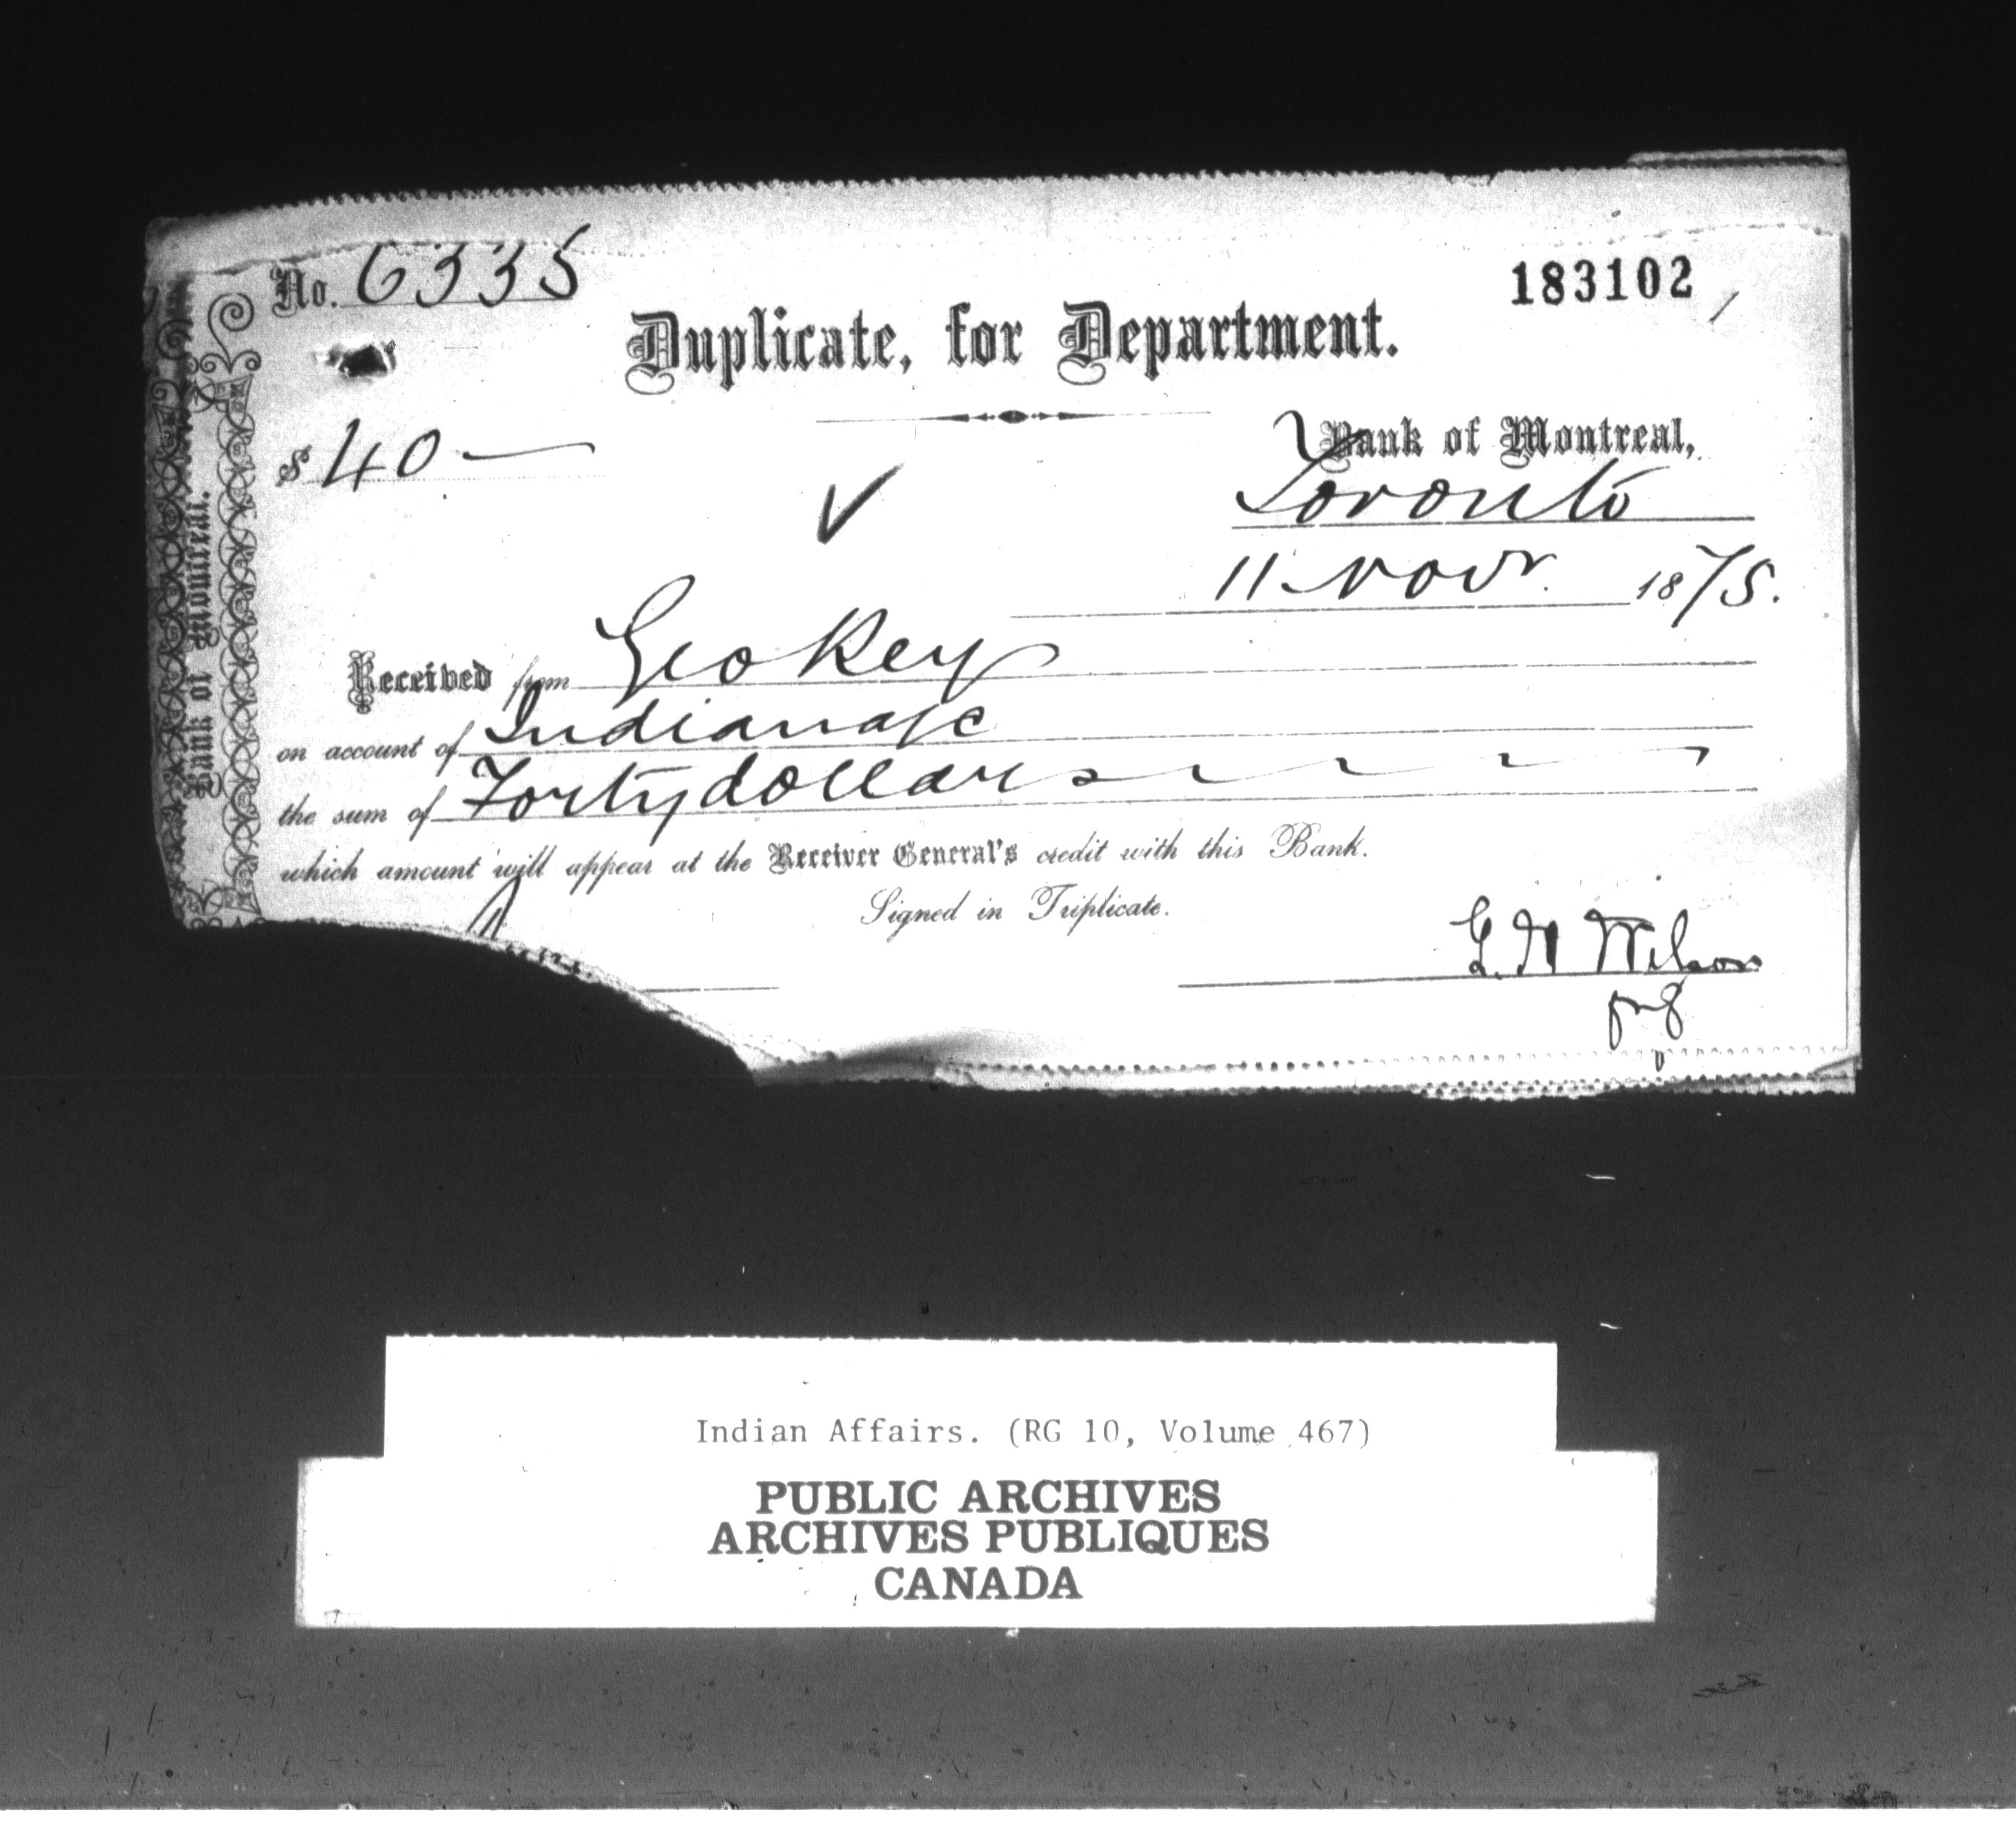 No. 6335
183102
Duplicate, for Department.
$ 40 —
Bank of Montreal,
Toronto
11 Novr. 1875.
Received from Geo Key
on account of Indian a/c
the sum of Forty dollars
which amount will appear at the Receiver General's credit with this Bank.
Signed in Triplicate.
G. H Wilson
Bank of Montreal.
Indian Affairs. (RG 10, Volume 467)
PUBLIC ARCHIVES
ARCHIVES PUBLIQUES
CANADA